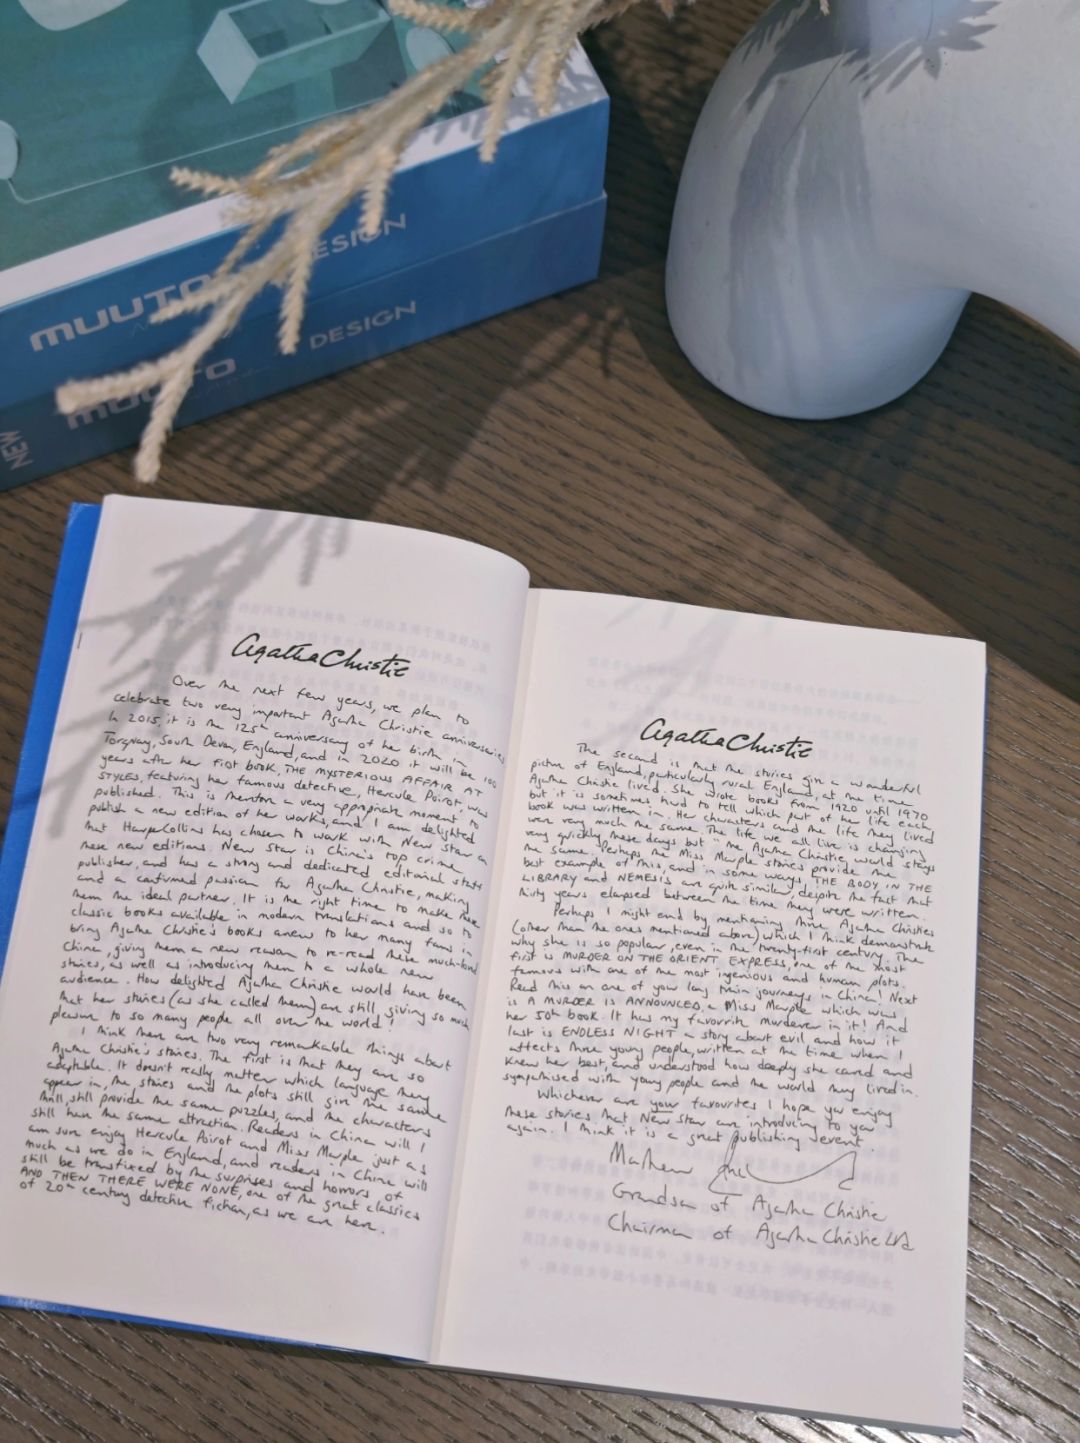 MUUTO DESIGN
MUUTO DESIGN
NEW
Agatha Christie
Over the next few years, we plan to
celebrate two very important Agatha Christie anniversaries.
In 2015, it is the 125th anniversary of her birth in
Torquay, South Devon, England, and in 2020 it will be 100
years after her first book, THE MYSTERIOUS AFFAIR AT
STYLES, featuring her famous detective, Hercule Poirot, was
published. This is therefore a very appropriate moment to
publish a new edition of her works, and I am delighted
that HarperCollins has chosen to work with New Star on
these new editions. New Star is China's top crime
publisher, and has a strong and dedicated editorial staff
and a confirmed passion for Agatha Christie, making
them the ideal partner. It is the right time to make these
classic books available in modern translations and so to
bring Agatha Christie's books anew to her many fans in
China, giving them a new reason to re-read these much-loved
stories, as well as introducing them to a whole new
audience. How delighted Agatha Christie would have been
that her stories (as she called them) are still giving so much
pleasure to so many people all over the world!
I think there are two very remarkable things about
Agatha Christie's stories. The first is that they are so
adaptable. It doesn't really matter which language they
appear in, the stories and the plots still give the same
thrill, still provide the same puzzles, and the characters
still have the same attraction. Readers in China will I
am sure enjoy Hercule Poirot and Miss Marple just as
much as we do in England, and readers in China will
still be transfixed by the surprises and horrors of
AND THEN THERE WERE NONE, one of the great classics
of 20th century detective fiction, as we are here.
Agatha Christie
The second is that the stories give a wonderful
picture of England, particularly rural England, at the time
Agatha Christie lived. She wrote books from 1920 until 1970
but it is sometimes hard to tell which part of her life each
book was written in. Her characters and the life they lived
were very much the same. The life we all live is changing
very quickly these days but the Agatha Christie world stays
the same. Perhaps the Miss Marple stories provide the
best example of this, and in some ways THE BODY IN THE
LIBRARY and NEMESIS are quite similar despite the fact that
thirty years elapsed between the time they were written.
Perhaps I might end by mentioning three Agatha Christies
(other than the ones mentioned above) which I think demonstrate
why she is so popular, even in the twenty-first century. The
first is MURDER ON THE ORIENT EXPRESS, one of the most
famous with one of the most ingenious and human plots.
Read this on one of your long train journeys in China! Next
is A MURDER IS ANNOUNCED, a Miss Marple which was
her 50th book. It has my favourite murderer in it! And
last is ENDLESS NIGHT a story about evil and how it
affects three young people, written at the time when I
knew her best, and understood how deeply she cared and
sympathised with young people and the world they lived in.
Whichever are your favourites I hope you enjoy
these stories that New Star are introducing to you
again. I think it is a great publishing event.
Mathew
Grandson of Agatha Christie
Chairman of Agatha Christie Ltd